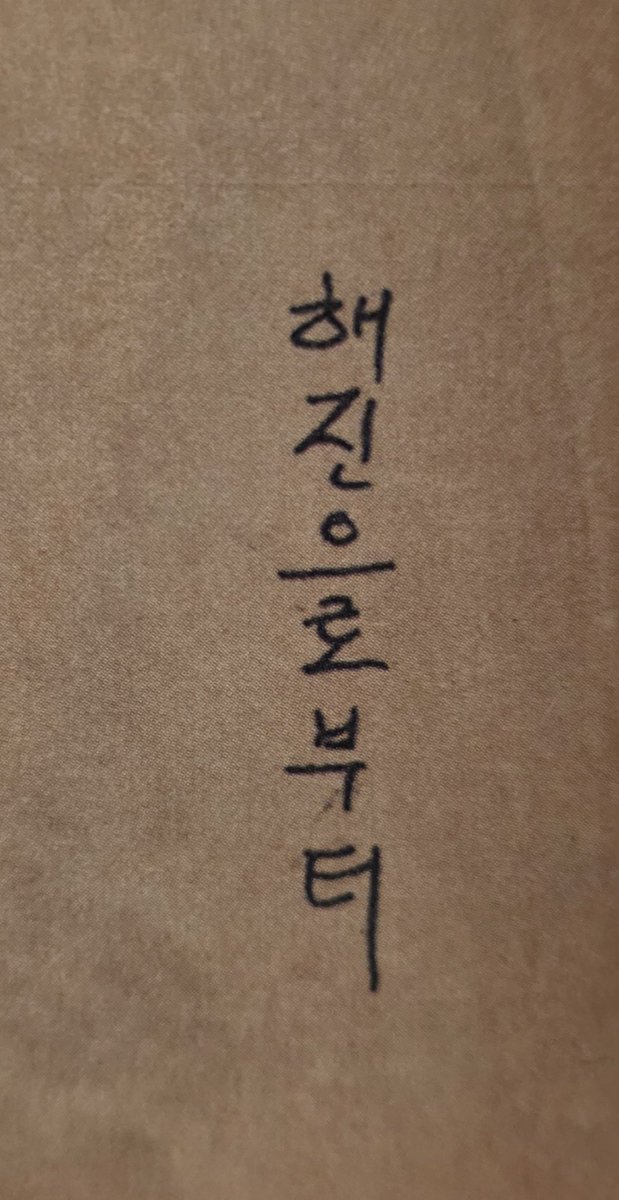 해진으로부터